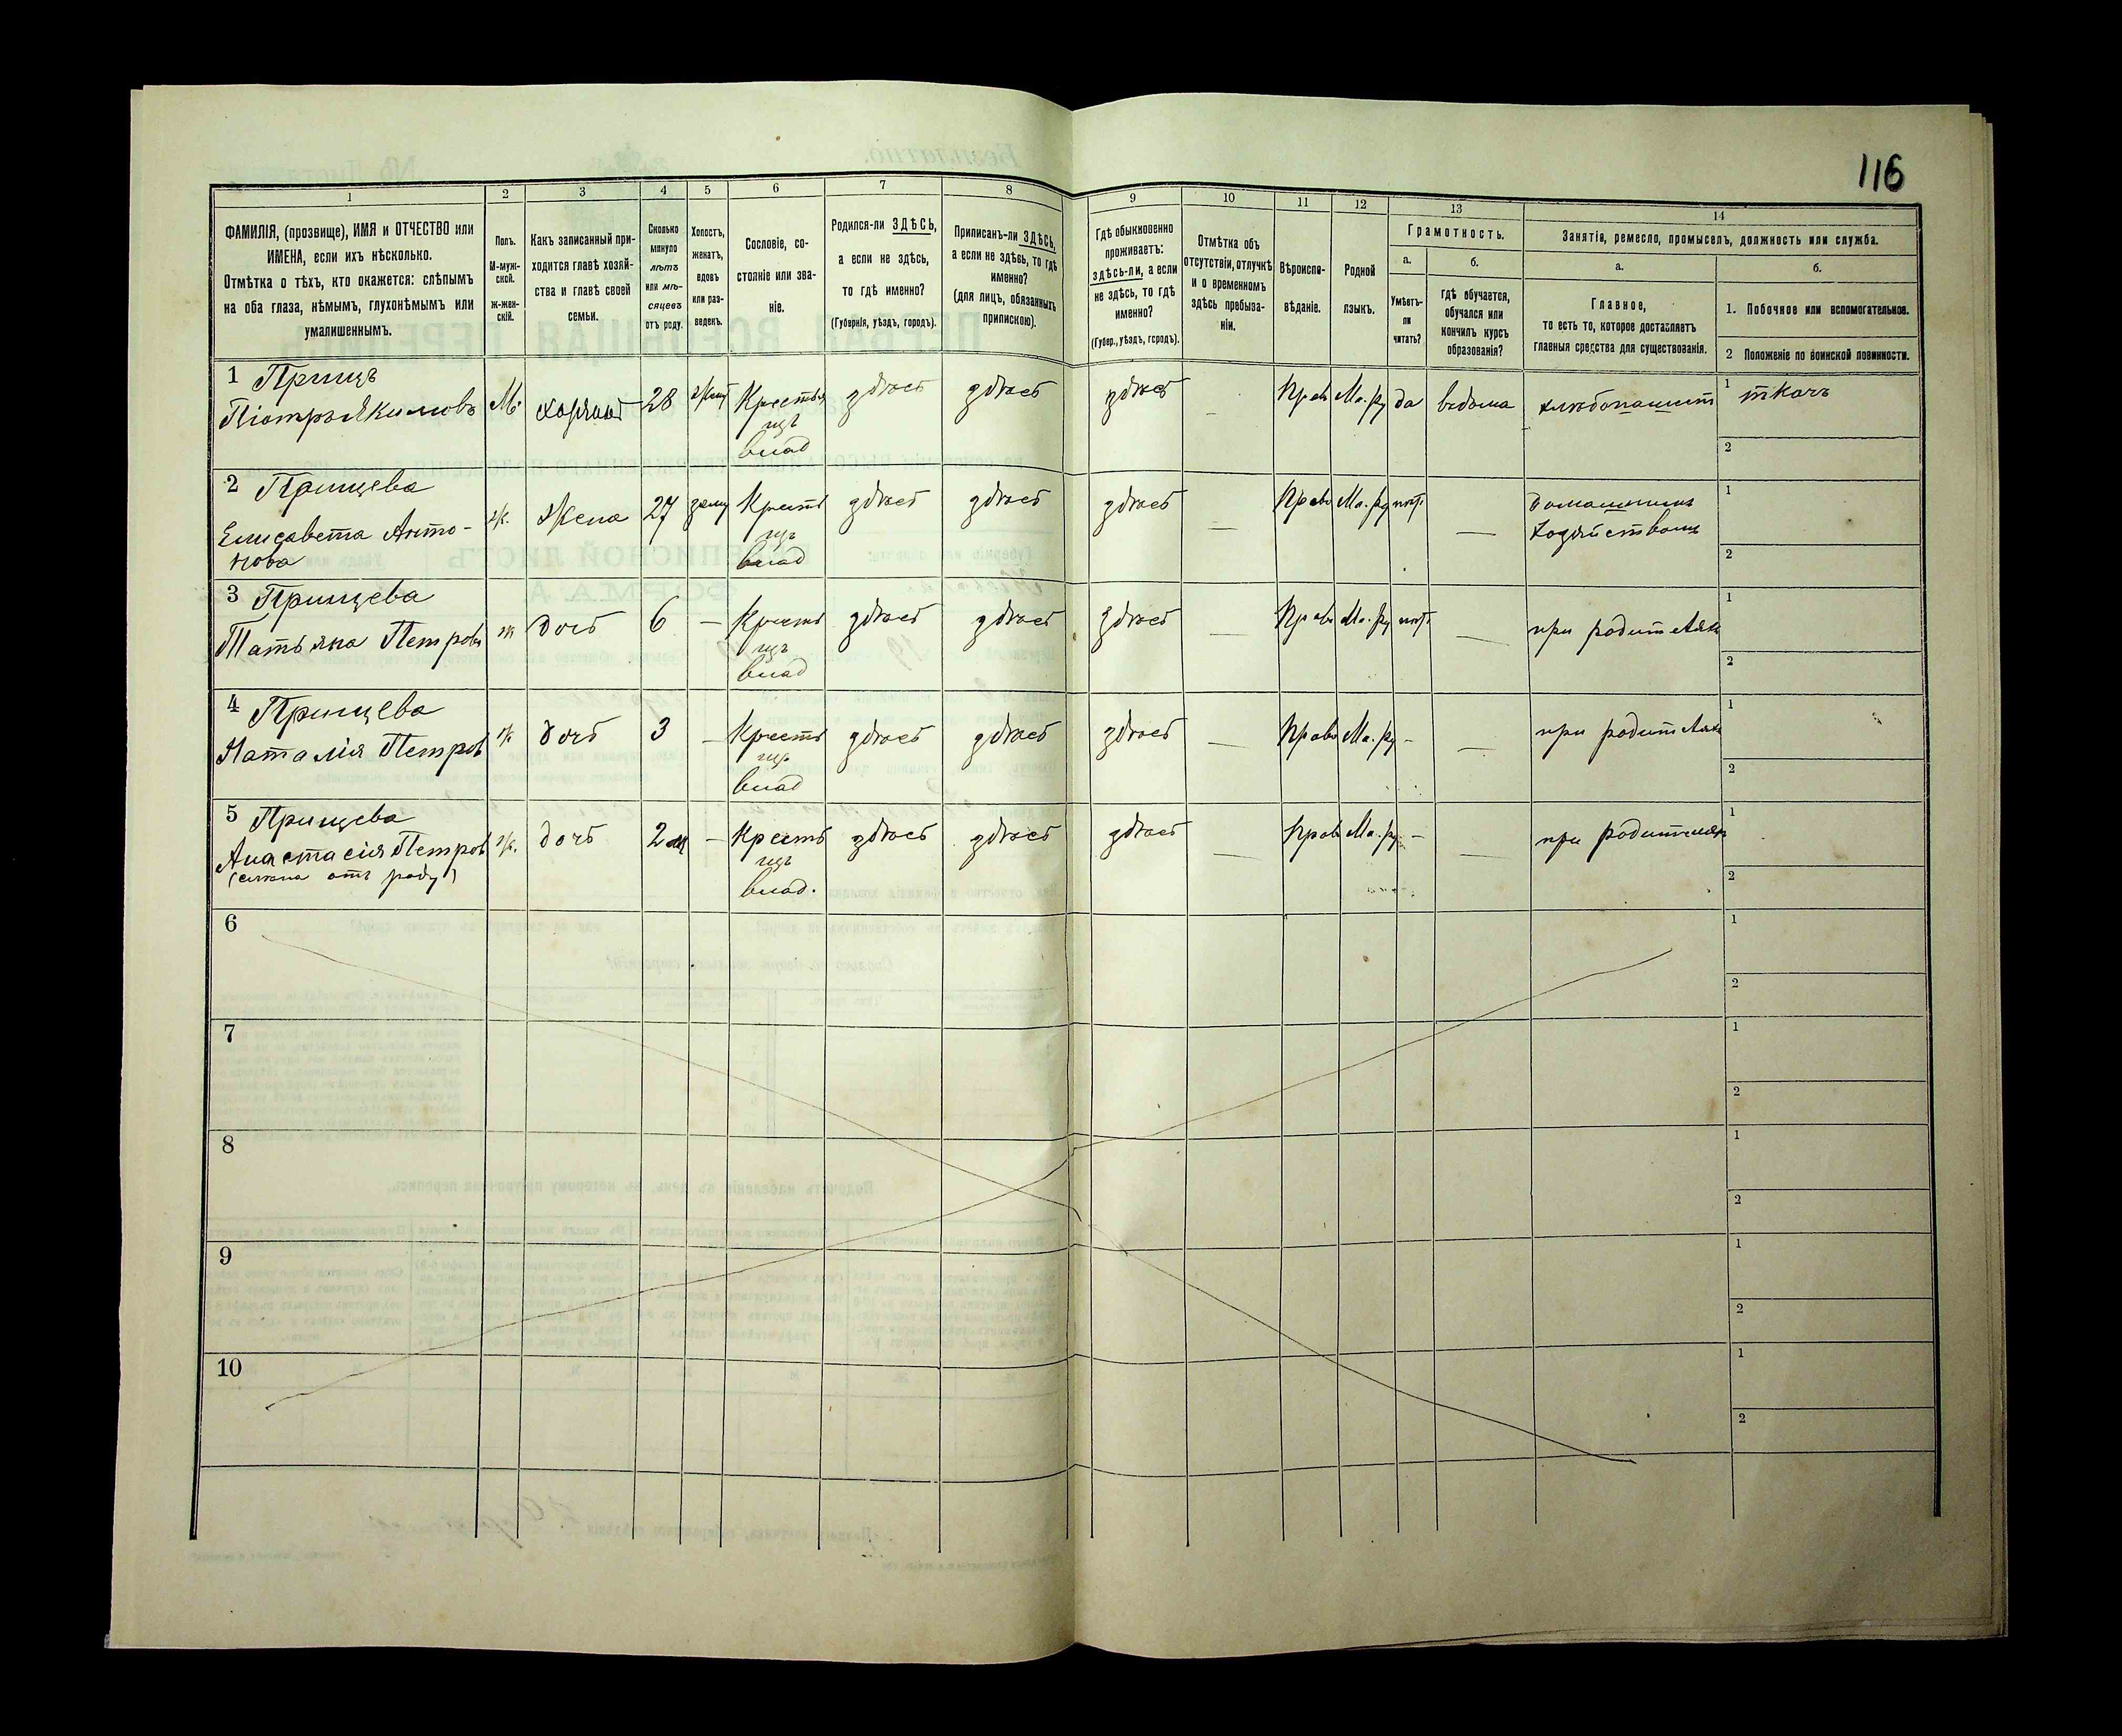 116
1
2
3
4
5
6
7
8
9
10
11
12
13
14
ФАМИЛІЯ, (прозвище), ИМЯ и ОТЧЕСТВО или
ИМЕНА, если ихъ нѣсколько.
Отмѣтка о тѣхъ, кто окажется: слѣпымъ
на оба глаза, нѣмымъ, глухонѣмымъ или
умалишеннымъ.
Полъ.
М-муж-
ской.
ж-жен-
скій.
Какъ записанный при-
ходится главѣ хозяй-
ства и главѣ своей
семьи.
Сколько
минуло
лѣтъ
или мѣ-
сяцевъ
отъ роду.
Холостъ,
женатъ,
вдовъ
или раз-
веденъ.
Сословіе, со-
стояніе или зва-
ніе.
Родился-ли ЗДѢСЬ,
а если не здѣсь,
то гдѣ именно?
(Губернія, уѣздъ, городъ).
Приписанъ-ли ЗДѢСЬ,
а если не здѣсь, то гдѣ
именно?
(для лицъ, обязанныхъ
припискою).
Гдѣ обыкновенно
проживаетъ:
здѣсь-ли, а если
не здѣсь, то гдѣ
именно?
(Губер., уѣздъ, городъ).
Отмѣтка объ
отсутствіи, отлучкѣ
и о временномъ
здѣсь пребыва-
ніи.
Вѣроиспо-
вѣданіе.
Родной
языкъ.
Грамотность.
а.
Умѣетъ-
ли
читать?
б.
гдѣ обучается,
обучался или
кончилъ курсъ
образованія?
Занятіе, ремесло, промыселъ, должность или служба.
а.
Главное,
то есть то, которое доставляетъ
главныя средства для существованія.
б.
1. Побочное или вспомогательное.
2 Положеніе по воинской повинности.
1 Прищъ
Піотръ Якимовъ
М. хозяинъ 28 жен Крестья здѣсь здѣсь здѣсь - Прав Ма. ру да ведома хлѣбопашест 1 ткачъ
нцъ
влад
2
2 Прищева
Елисавета Анто-
нова
ж. жена 27 заму Крестя здѣсь здѣсь здѣсь — Право Ма. ру нѣт — домашнимъ
хозяйствомъ
нцъ
влад
1
2
3 Прищева
Татьяна Петрова
ж дочь 6 — Крестя здѣсь здѣсь здѣсь — Право Ма. ру нѣт — при родителяхъ
нцъ
влад
1
2
4 Прищева
Наталія Петров
ж дочь 3 — Крестя здѣсь здѣсь здѣсь — Право Ма. ру - — при родителяхъ
нцъ
влад
1
2
5 Прищева
Анастасія Петров
(слѣпа отъ роду)
ж. дочь 2 м — Крестя здѣсь здѣсь здѣсь — Прав Ма. ру - — при родителяхъ
нцъ
влад.
1
2
6
1
2
7
1
2
8
1
2
9
1
2
10
1
2